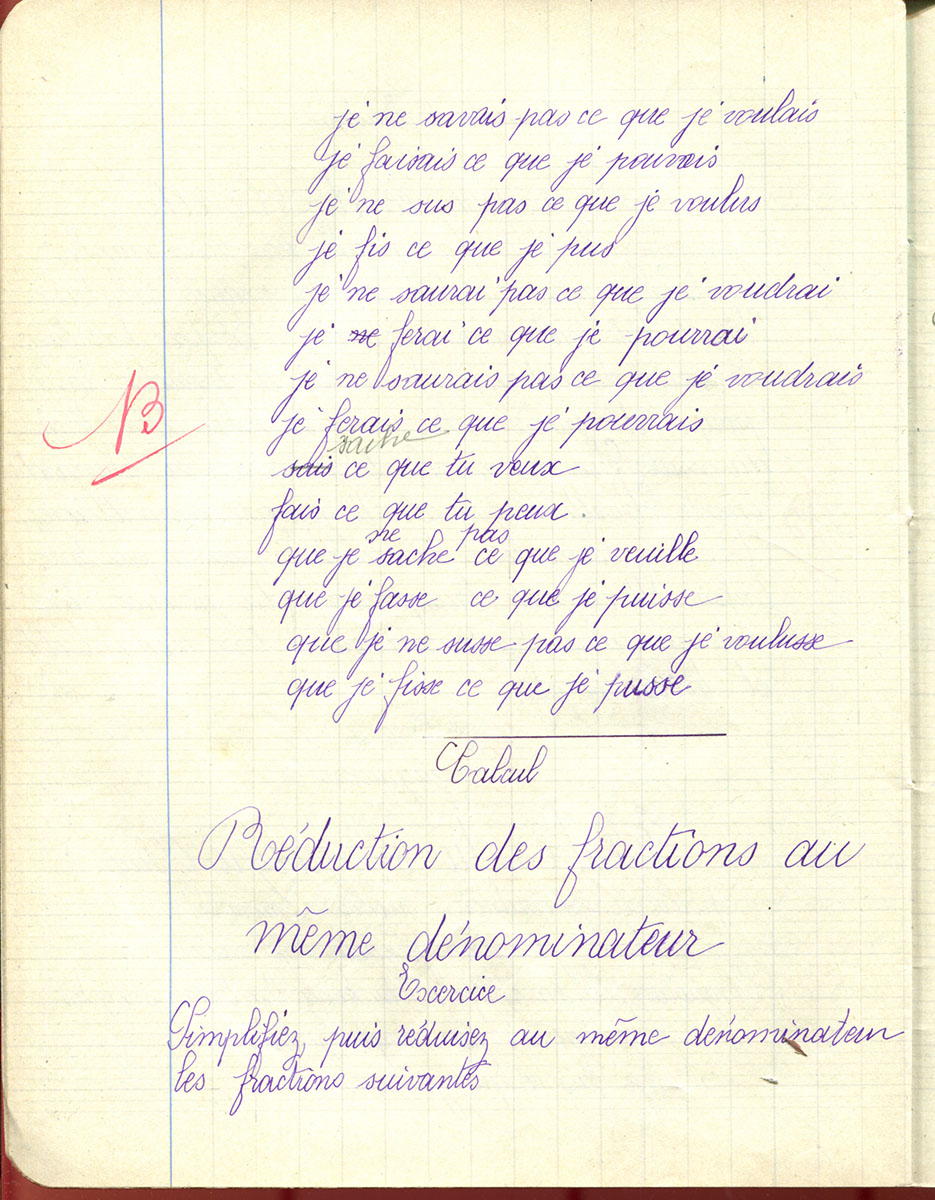 je ne savais pas ce que je voulais
je faisais ce que je pouvais
je ne sus pas ce que je voulus
je fis ce que je pus
je ne saurai pas ce que je voudrai
je ne ferai ce que je pourrai
je ne saurais pas ce que je voudrais
je ferais ce que je pourrais
sache
sais ce que tu veux
fais ce que tu peux.
ne pas
que je sache ce que je veuille
que je fasse ce que je puisse
que je ne susse pas ce que je voulusse
que je fisse ce que je pusse
B
Calcul
Réduction des fractions au
même dénominateur
Exercice
Simplifiez, puis réduisez au même dénominateur
les fractions suivantes